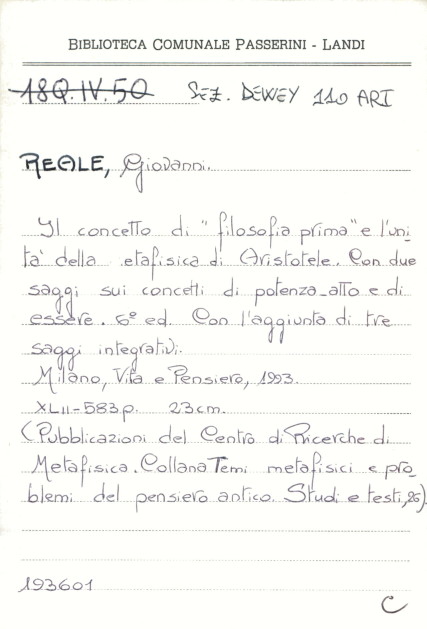 BIBLIOTECA COMUNALE PASSERINI - LANDI
18Q.IV.50 SEZ. DEWEY 110 ART
REALE, Giovanni.
Il concetto di "filosofia prima" e l'uni
tà della etafisica di Aristotele. Con due
saggi sui concetti di potenza-atto e di
essere. 6ª ed. Con l'aggiunta di tre
saggi integrativi.
Milano, Vita e Pensiero, 1993.
XLII-583 p. 23 cm.
(Pubblicazioni del Centro di Ricerche di
Metafisica. Collana Temi metafisici e pro_
blemi del pensiero antico. Studi e testi, 26).
193601
C